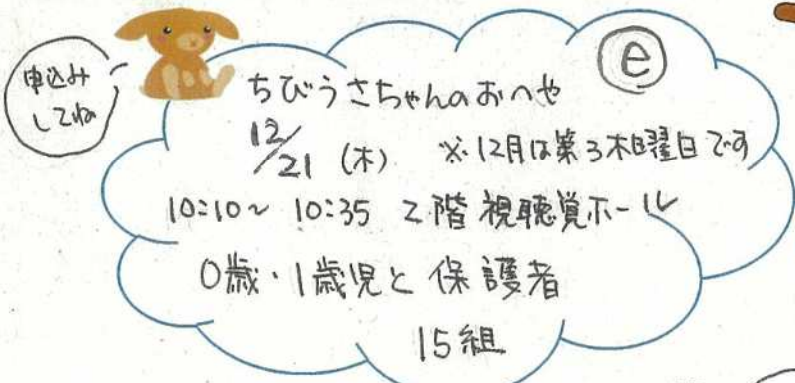 申込み
してね
ⓔ
ちびうさちゃんのおへや
12/21 (木) ※12月は第3木曜日です
10:10~10:35 2階 視聴覚ホール
0歳・1歳児と保護者
15組